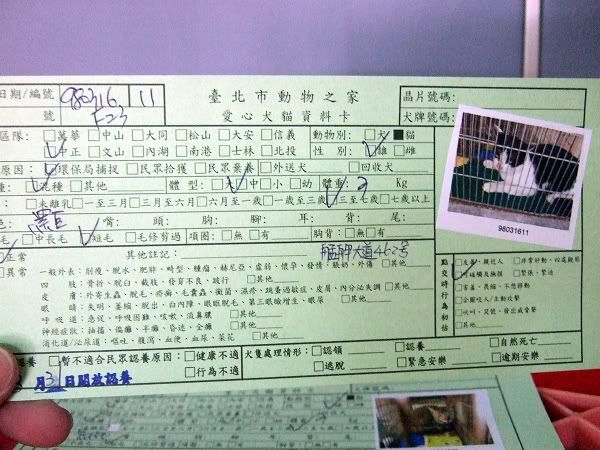 日期/編號 980316 11 臺北市動物之家 晶片號碼:
F23 愛心犬貓資料卡 犬牌號碼:
區隊: □萬華 □中山 □大同 □松山 □大安 □信義 動物別: □犬 ■貓
□中正 □文山 □內湖 □南港 □士林 □北投 性 別: □雄 □雌
原因: □環保局捕捉 □民眾拾獲 □民眾棄養 □外送犬 □回收犬
種: □混種 □其他 體 型: □大 □中 □小 □幼 體重: 2 Kg
□未離乳 □一至三月 □三至六月 □六月至一歲 □一歲至三歲 □三至七歲 □七歲以上
色: 黑白 嘴: 頭: 胸: 腳: 耳: 背: 尾:
毛 □中長毛 □短毛 □毛修剪過 項圈: □無 □有 胸背: □無 □有
98031611
□正常 其他註記: 艋舺大道462号
□異常 一般外表: 削瘦、脫水、肥胖、畸型、腫瘤、赫尼亞、虛弱、懷孕、發情、眼奶、外傷 □其他
四 肢: 骨折、脫臼、截肢、發育不良、跛行 □其他
皮 膚: 外寄生蟲、脫毛、疥癬、毛囊蟲、黴菌、濕疹、跳蚤過敏症、皮屑、內分泌失調 □其他
眼 睛: 失明、萎縮、脫出、白內障、眼瞼脫毛、第三眼瞼增生、眼屎 □其他
呼 吸 道: 急促、呼吸困難、咳嗽、消鼻膿 □其他
神經症狀: 抽搐、偏癱、半癱、昏迷、全癱 □其他
消化道/泌尿道: 嘔吐、腹瀉、血便、血尿、菜花 □其他
點交時行為初估
□友善、親近人 □非常好動、四處觀望
□可碰觸及撫摸 □緊張、緊迫
□害羞、畏縮、不想移動
□企圖咬人/主動攻擊
□吠叫、哭號、發出威脅聲
□其他
認養 □暫不適合民眾認養原因: □健康不適 犬隻處理情形: □認領 □認養 □自然死亡
□行為不適 □逃脫 □緊急安樂 □逾期安樂
月31日開放認養